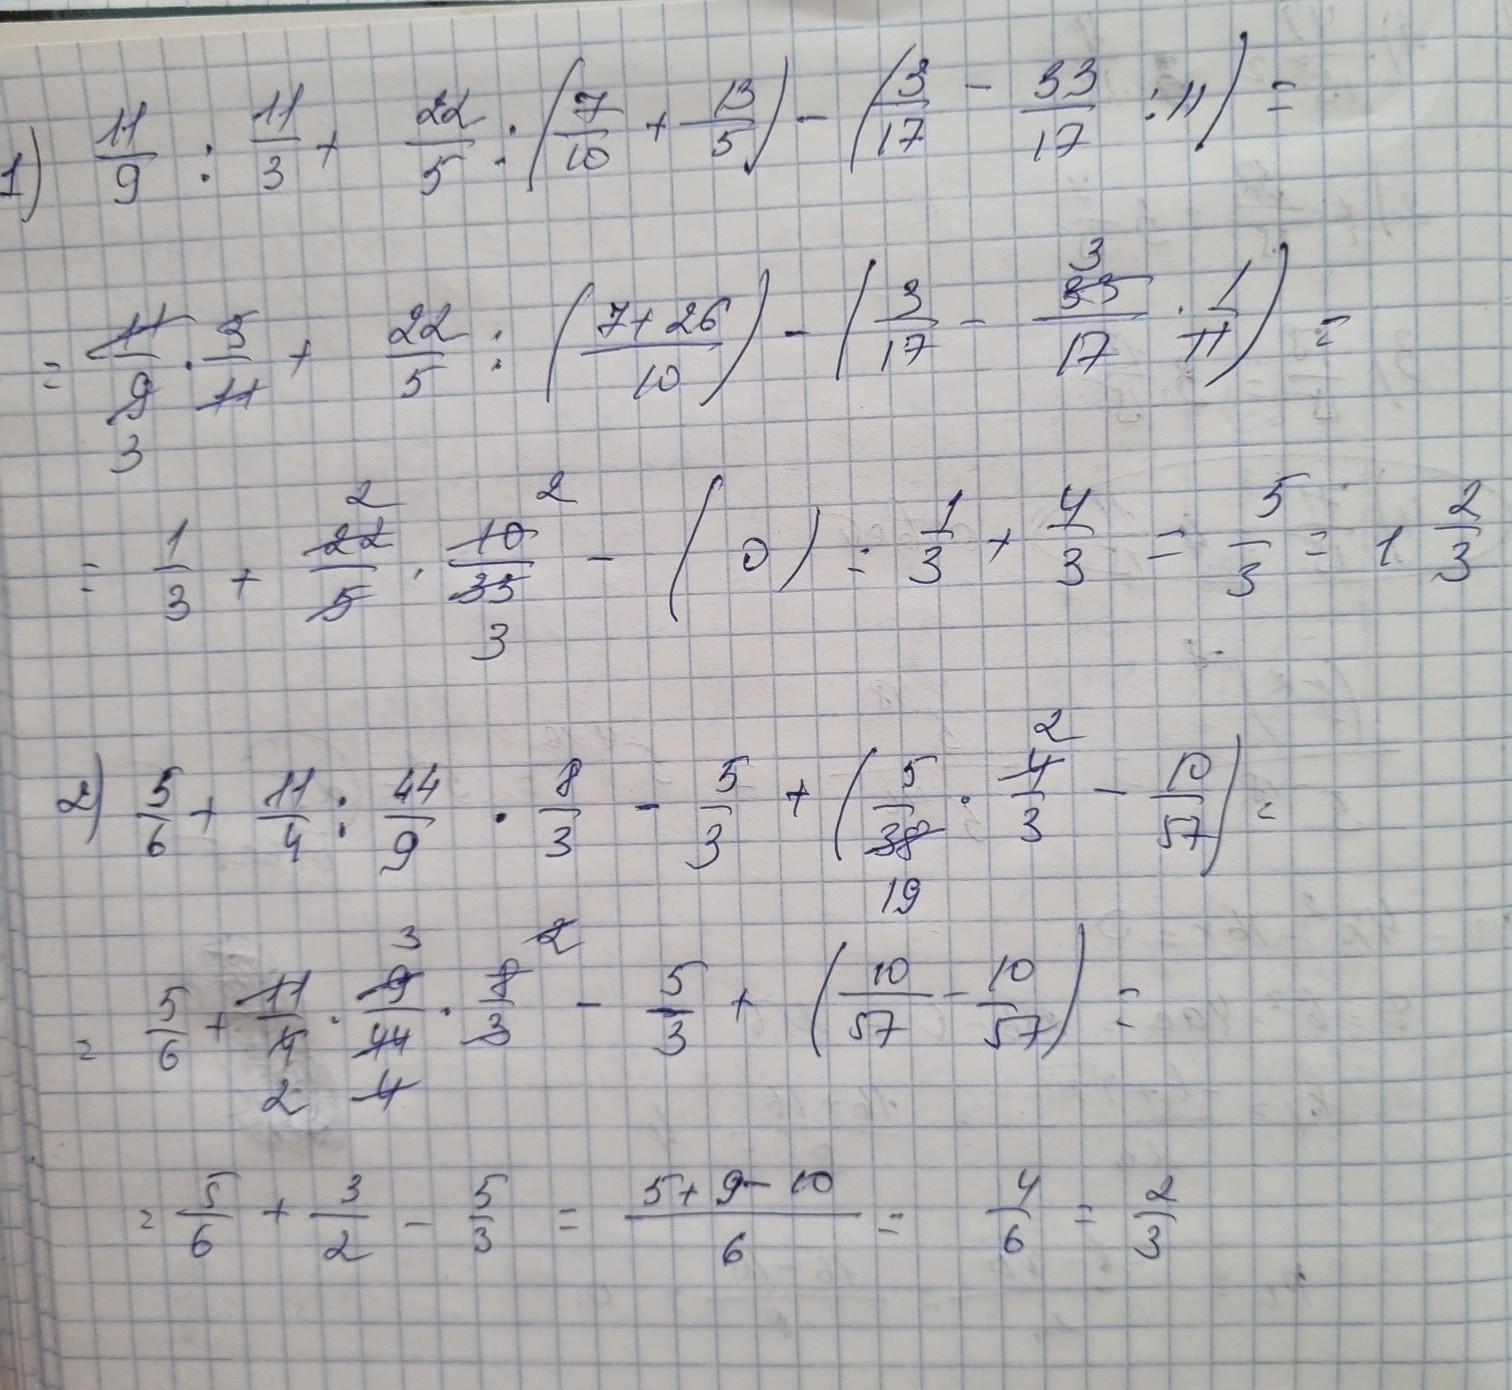 1) 11/9 : 11/3 + 22/5 : (7/10 + 13/5) - (3/17 - 33/17 : 11) =
= 11/9 · 3/11 + 22/5 : ((7+26)/10) - (3/17 - 33/17 · 1/11) =
= 1/3 + 22/5 · 10/33 - (0) = 1/3 + 4/3 = 5/3 = 1 2/3
2) 5/6 + 11/4 : 44/9 · 8/3 - 5/3 + (5/38 · 4/3 - 10/57) =
= 5/6 + 11/4 · 9/44 · 8/3 - 5/3 + (10/57 - 10/57) =
= 5/6 + 3/2 - 5/3 = (5+9-10)/6 = 4/6 = 2/3